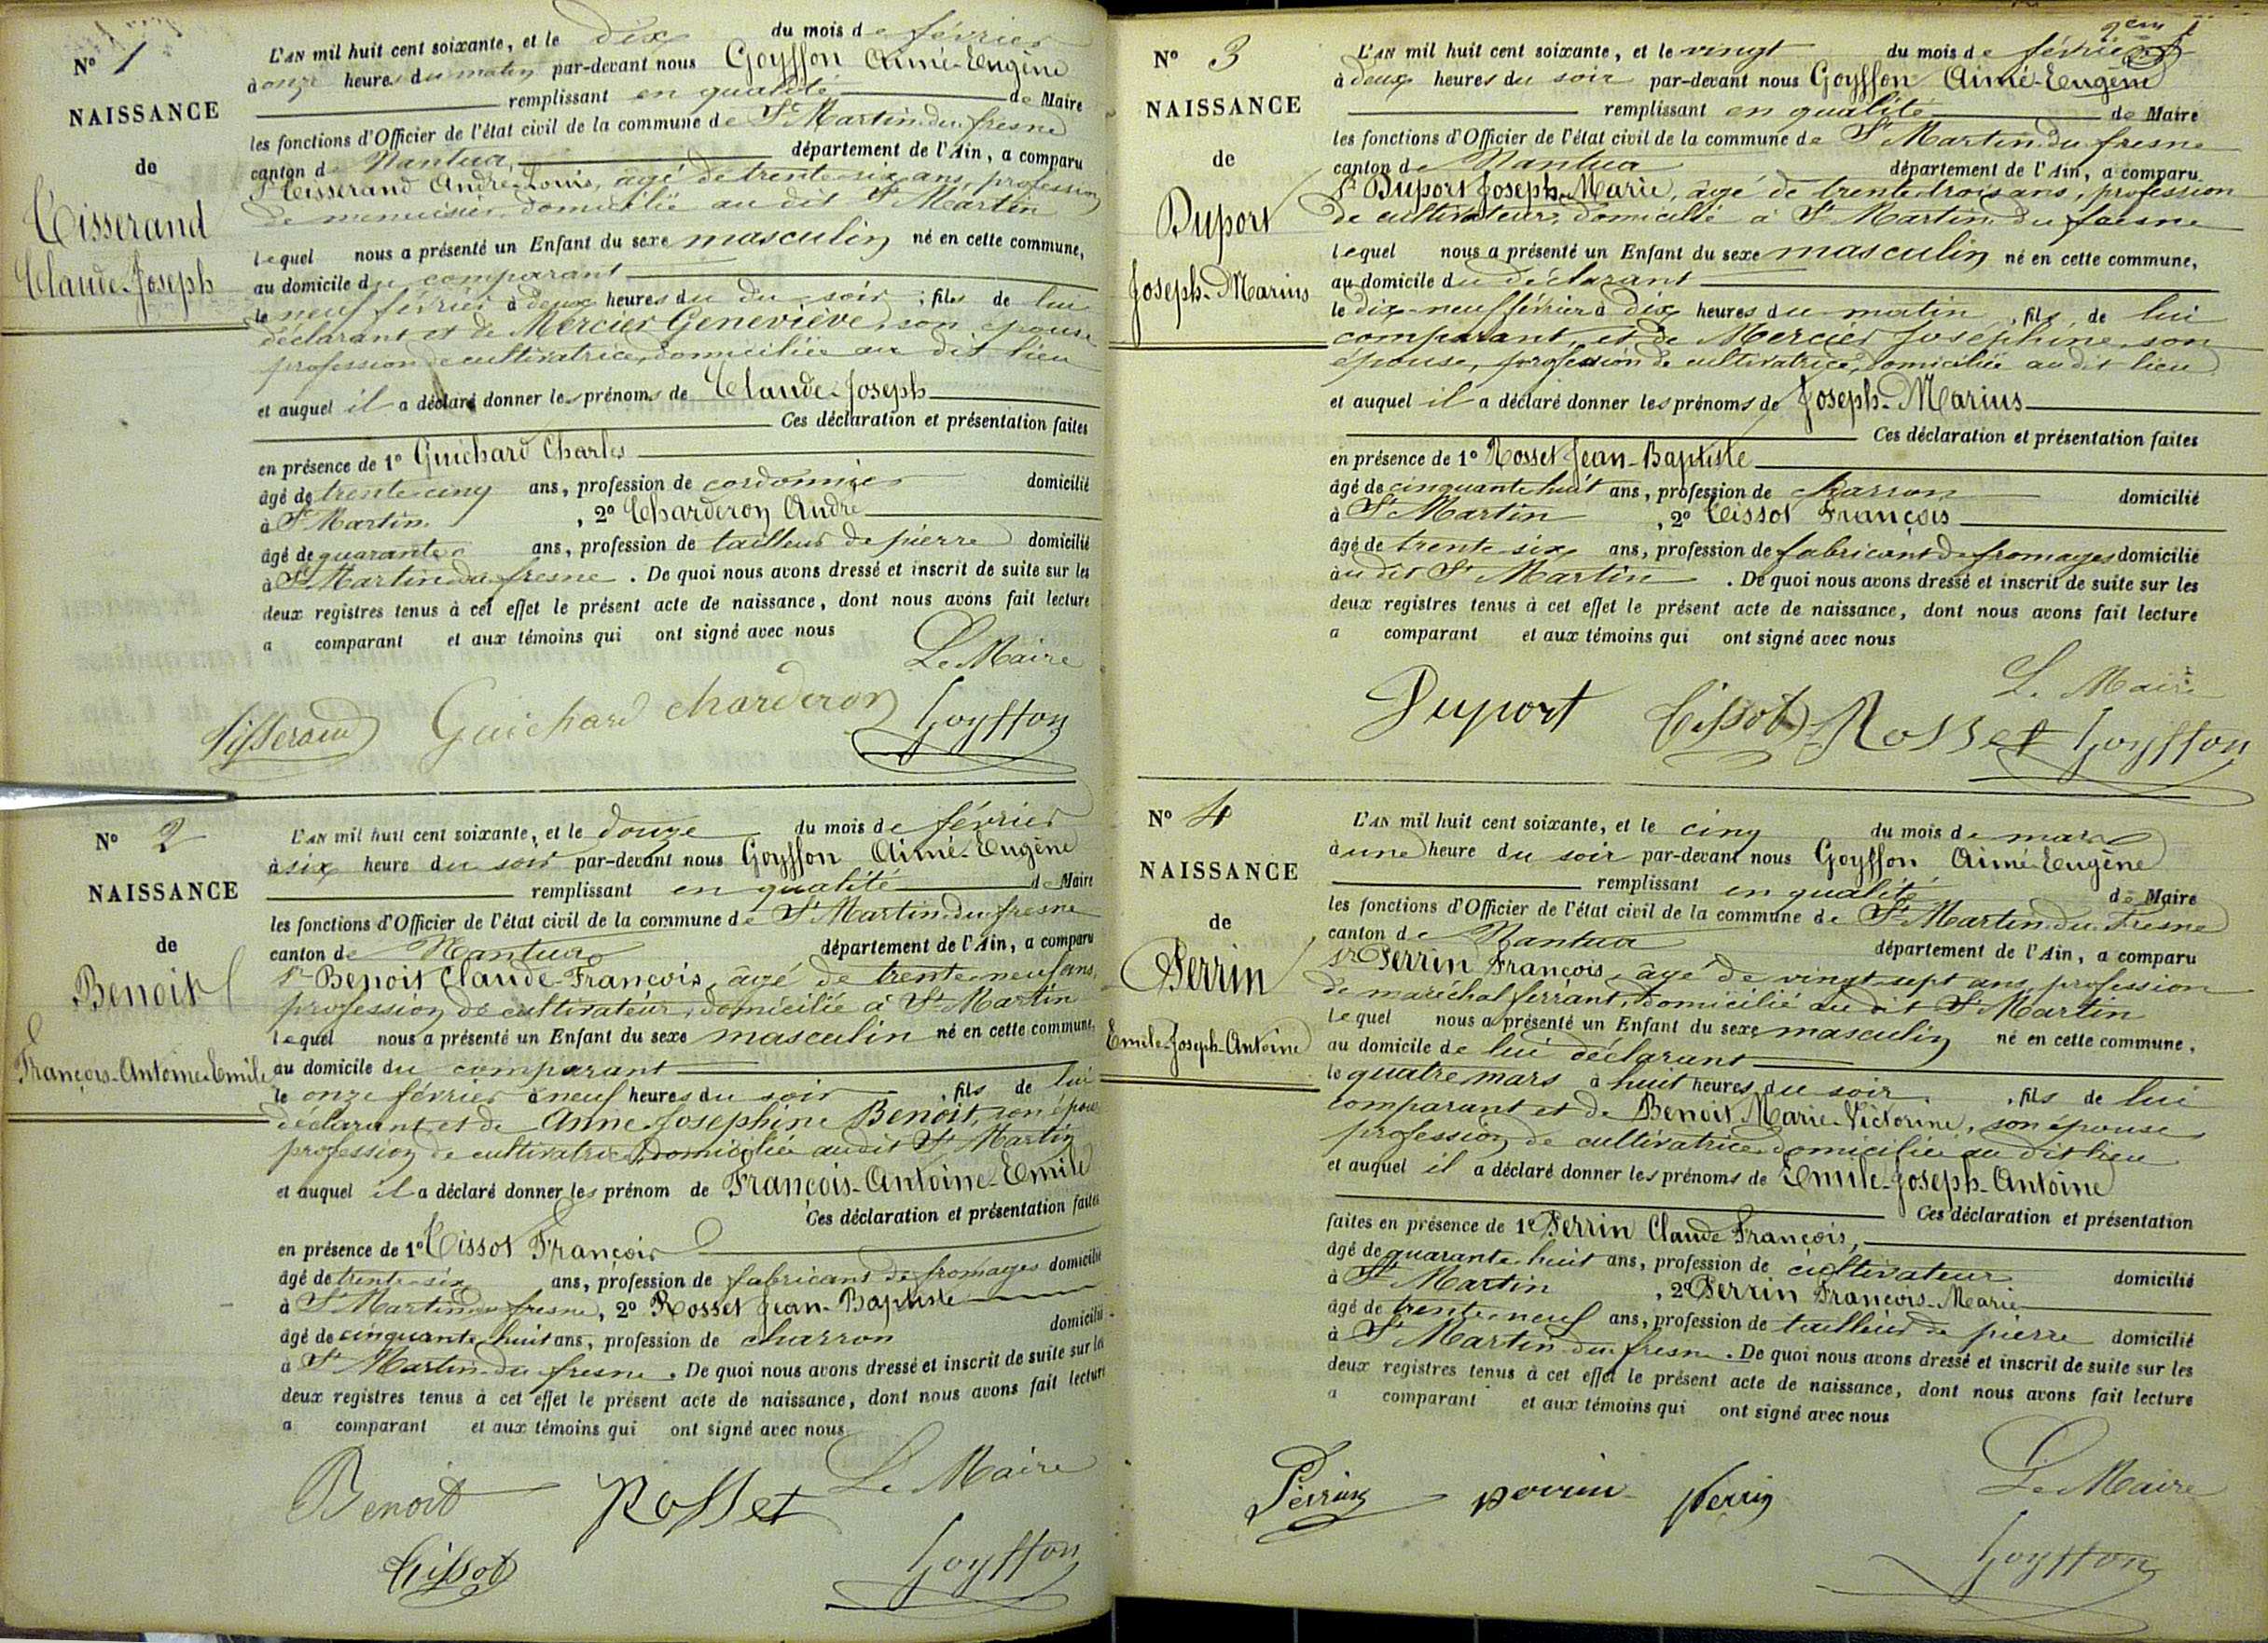 N° 1
NAISSANCE
de
Tisserand
Claude-Joseph
L'AN mil huit cent soixante, et le dix du mois de février
à onze heures du matin par-devant nous Goyffon Aimé-Eugène
remplissant en qualité de Maire
les fonctions d'Officier de l'état civil de la commune de St Martin-du-fresne
canton de Nantua, département de l'Ain, a comparu
Sr Tisserand André-Louis, âgé de trente-six ans, profession
de menuisier, domicilié au dit St Martin
lequel nous a présenté un Enfant du sexe masculin né en cette commune,
au domicile du comparant
le neuf février à deux heures du du soir, fils de lui
déclarant et de Mercier Geneviève, son épouse
profession de cultivatrice, domiciliée au dit lieu
et auquel il a déclaré donner les prénoms de Claude-Joseph
Ces déclaration et présentation faites
en présence de 1° Guichard Charles
âgé de trente-cinq ans, profession de cordonnier domicilié
à St Martin, 2° Charderon André
âgé de quarante ans, profession de tailleur de pierre domicilié
à St Martin-du-fresne. De quoi nous avons dressé et inscrit de suite sur les
deux registres tenus à cet effet le présent acte de naissance, dont nous avons fait lecture
a comparant et aux témoins qui ont signé avec nous
Le Maire
Tisserand Guichard charderon Goyffon
N° 2
NAISSANCE
de
Benoit
François-Antoine-Emile
L'AN mil huit cent soixante, et le douze du mois de février
à six heure du soir par-devant nous Goyffon Aimé-Eugène
remplissant en qualité de Maire
les fonctions d'Officier de l'état civil de la commune de St Martin-du-fresne
canton de Nantua département de l'Ain, a comparu
Sr Benoit Claude-François, âgé de trente-neuf ans,
profession de cultivateur, domicilié à St Martin
lequel nous a présenté un Enfant du sexe masculin né en cette commune,
au domicile du comparant
le onze février à neuf heures du soir, fils de lui
déclarant et de Anne Josephine Benoit, son épouse
profession de cultivatrice, domiciliée audit St Martin
et auquel il a déclaré donner les prénom de François-Antoine-Emile
Ces déclaration et présentation faites
en présence de 1° Tissot François
âgé de trente-six ans, profession de fabricant de fromages domicilié
à St Martin-du-fresne, 2° Rosset Jean-Baptiste
âgé de cinquante-huit ans, profession de charron domicilié
à St Martin-du-fresne. De quoi nous avons dressé et inscrit de suite sur les
deux registres tenus à cet effet le présent acte de naissance, dont nous avons fait lecture
a comparant et aux témoins qui ont signé avec nous
Le Maire
Benoit Rosset
Tissot Goyffon
N° 3
NAISSANCE
de
Duport
Joseph-Marius
L'AN mil huit cent soixante, et le vingt du mois de février
à deux heures du soir par-devant nous Goyffon Aimé-Eugène
remplissant en qualité de Maire
les fonctions d'Officier de l'état civil de la commune de St Martin-du-fresne
canton de Nantua département de l'Ain, a comparu
Sr Duport Joseph-Marie, âgé de trente-trois ans, profession
de cultivateur, domicilié à St Martin-du-fresne
lequel nous a présenté un Enfant du sexe masculin né en cette commune,
au domicile du déclarant
le dix-neuf février à dix heures du matin, fils de lui
comparant, et de Mercier Joséphine, son
épouse, profession de cultivatrice, domiciliée au dit lieu
et auquel il a déclaré donner les prénoms de Joseph-Marius
Ces déclaration et présentation faites
en présence de 1° Rosset Jean-Baptiste
âgé de cinquante-huit ans, profession de charron domicilié
à St Martin, 2° Tissot François
âgé de trente six ans, profession de fabricant de fromages domicilié
au dit St Martin. De quoi nous avons dressé et inscrit de suite sur les
deux registres tenus à cet effet le présent acte de naissance, dont nous avons fait lecture
a comparant et aux témoins qui ont signé avec nous
Le Maire
Duport Tissot Rosset Goyffon
N° 4
NAISSANCE
de
Perrin
Emile-Joseph-Antoine
L'AN mil huit cent soixante, et le cinq du mois de mars
à une heure du soir par-devant nous Goyffon Aimé-Eugène
remplissant en qualité de Maire
les fonctions d'Officier de l'état civil de la commune de St Martin-du-Fresne
canton de Nantua département de l'Ain, a comparu
Sr Perrin François, âgé de vingt-sept ans, profession
de maréchal ferrant, domicilié au dit St Martin
lequel nous a présenté un Enfant du sexe masculin né en cette commune,
au domicile de lui déclarant
le quatre mars à huit heures du soir, fils de lui
comparant et de Benoit Marie-Victorine, son épouse
profession de cultivatrice domiciliée au dit lieu
et auquel il a déclaré donner les prénoms de Emile-Joseph-Antoine
Ces déclaration et présentation
faites en présence de 1° Perrin Claude François,
âgé de quarante-huit ans, profession de cultivateur domicilié
à St Martin, 2° Perrin François-Marie
âgé de trente-neuf ans, profession de tailleur de pierre domicilié
à St Martin-du-fresne. De quoi nous avons dressé et inscrit de suite sur les
deux registres tenus à cet effet le présent acte de naissance, dont nous avons fait lecture
a comparant et aux témoins qui ont signé avec nous
Le Maire
Perrin perrin Perrin
Goyffon